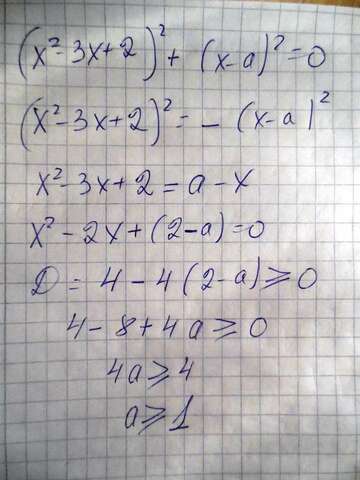 (x²-3x+2)²+ (x-a)²=0
(x²-3x+2)²= - (x-a)²
x²-3x+2=a-x
x²-2x+(2-a)=0
D = 4-4(2-a)⩾0
4-8+4a⩾0
4a⩾4
a⩾1